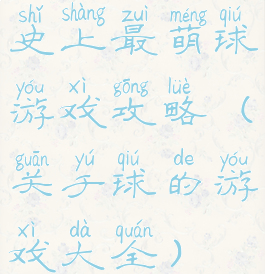 shǐ shàng zuì méng qiú
史上最萌球
yóu xì gōng lüè
游戏攻略（
guān yú qiú de yóu
关于球的游
xì dà quán
戏大全）